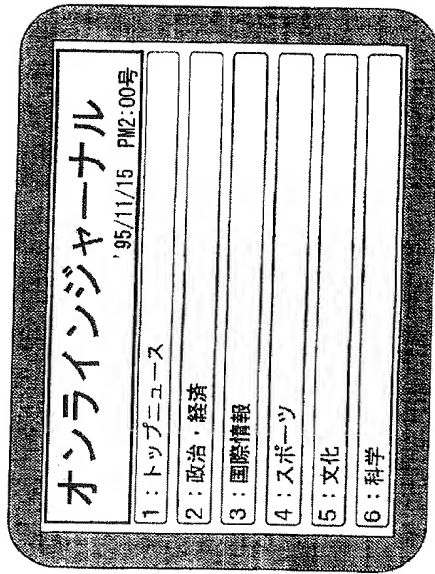 オンラインジャーナル
'95/11/15 PM2:00号
1：トップニュース
2：政治・経済
3：国際情報
4：スポーツ
5：文化
6：科学